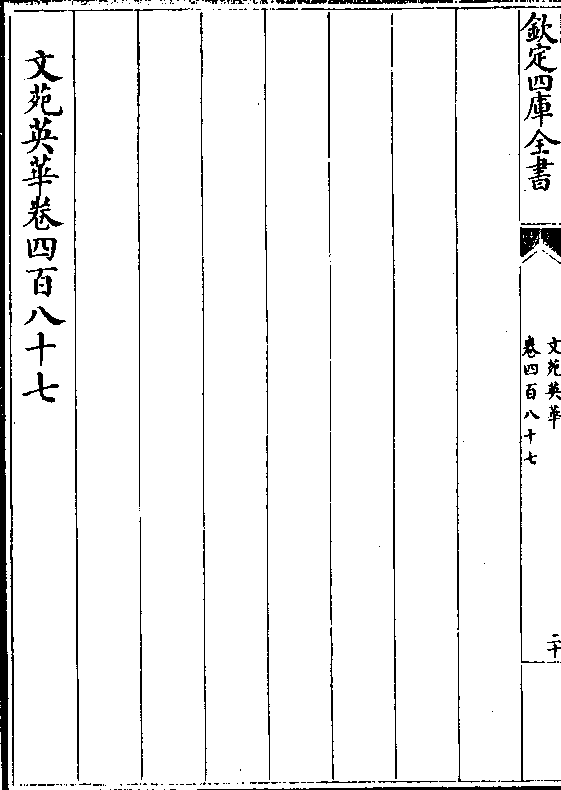 欽定四庫全書
文苑英華
卷四百八十七
二十
文苑英華卷四百八十七